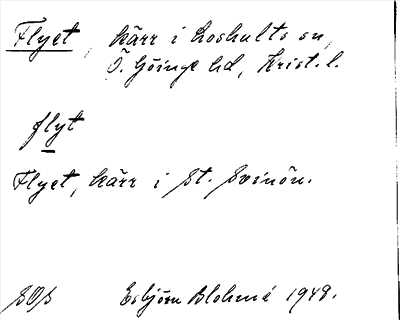 Flyet, kärr i Loshults sn,
Ö. Göinge hd, Krist. l.
flyt
Flyet, kärr i St. Svinön.
SOS Esbjörn Blohmé 1948.